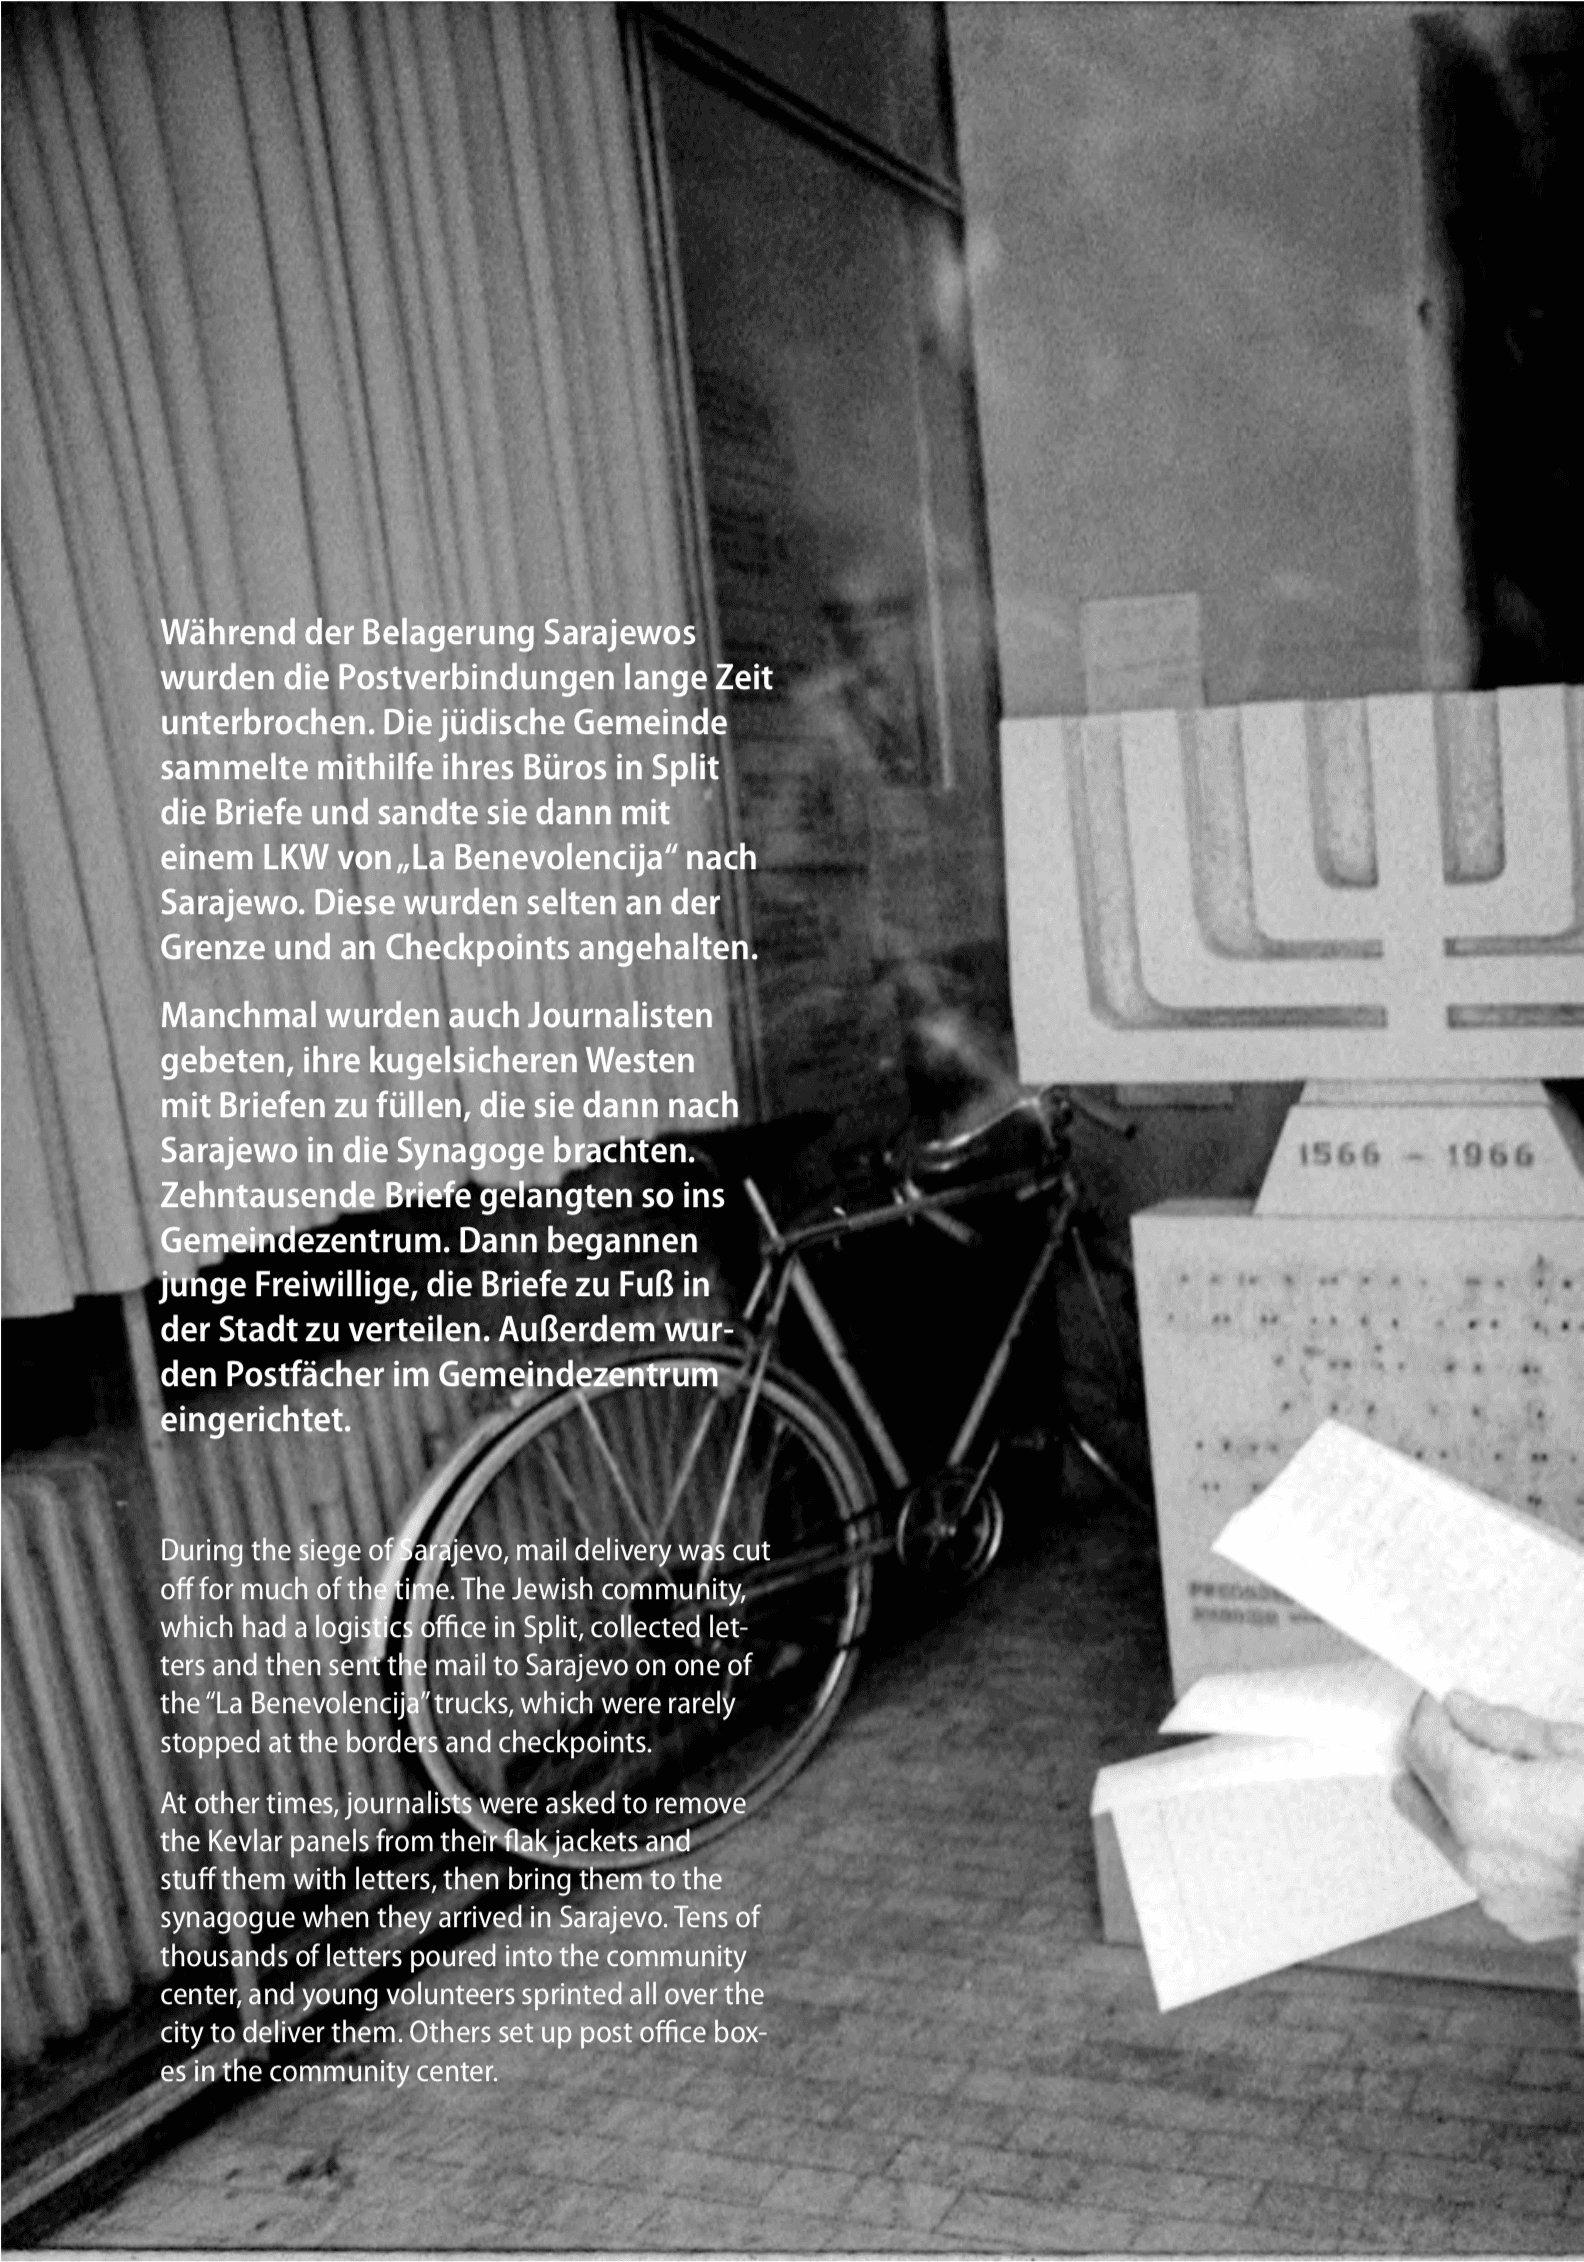 Während der Belagerung Sarajewos
wurden die Postverbindungen lange Zeit
unterbrochen. Die jüdische Gemeinde
sammelte mithilfe ihres Büros in Split
die Briefe und sandte sie dann mit
einem LKW von „La Benevolencija“ nach
Sarajewo. Diese wurden selten an der
Grenze und an Checkpoints angehalten.
Manchmal wurden auch Journalisten
gebeten, ihre kugelsicheren Westen
mit Briefen zu füllen, die sie dann nach
Sarajewo in die Synagoge brachten.
Zehntausende Briefe gelangten so ins
Gemeindezentrum. Dann begannen
junge Freiwillige, die Briefe zu Fuß in
der Stadt zu verteilen. Außerdem wur-
den Postfächer im Gemeindezentrum
eingerichtet.
During the siege of Sarajevo, mail delivery was cut
off for much of the time. The Jewish community,
which had a logistics office in Split, collected let-
ters and then sent the mail to Sarajevo on one of
the “La Benevolencija” trucks, which were rarely
stopped at the borders and checkpoints.
At other times, journalists were asked to remove
the Kevlar panels from their flak jackets and
stuff them with letters, then bring them to the
synagogue when they arrived in Sarajevo. Tens of
thousands of letters poured into the community
center, and young volunteers sprinted all over the
city to deliver them. Others set up post office box-
es in the community center.
1566 – 1966